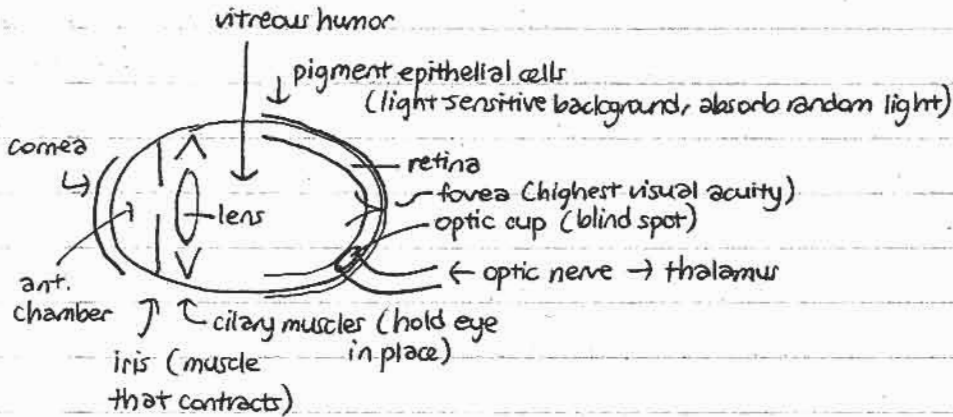 vitreous humor
pigment epithelial cells
(light sensitive background, absorb random light)
cornea
retina
fovea (highest visual acuity)
lens
optic cup (blind spot)
← optic nerve → thalamus
ant.
chamber
cilary muscles (hold eye
in place)
iris (muscle
that contracts)